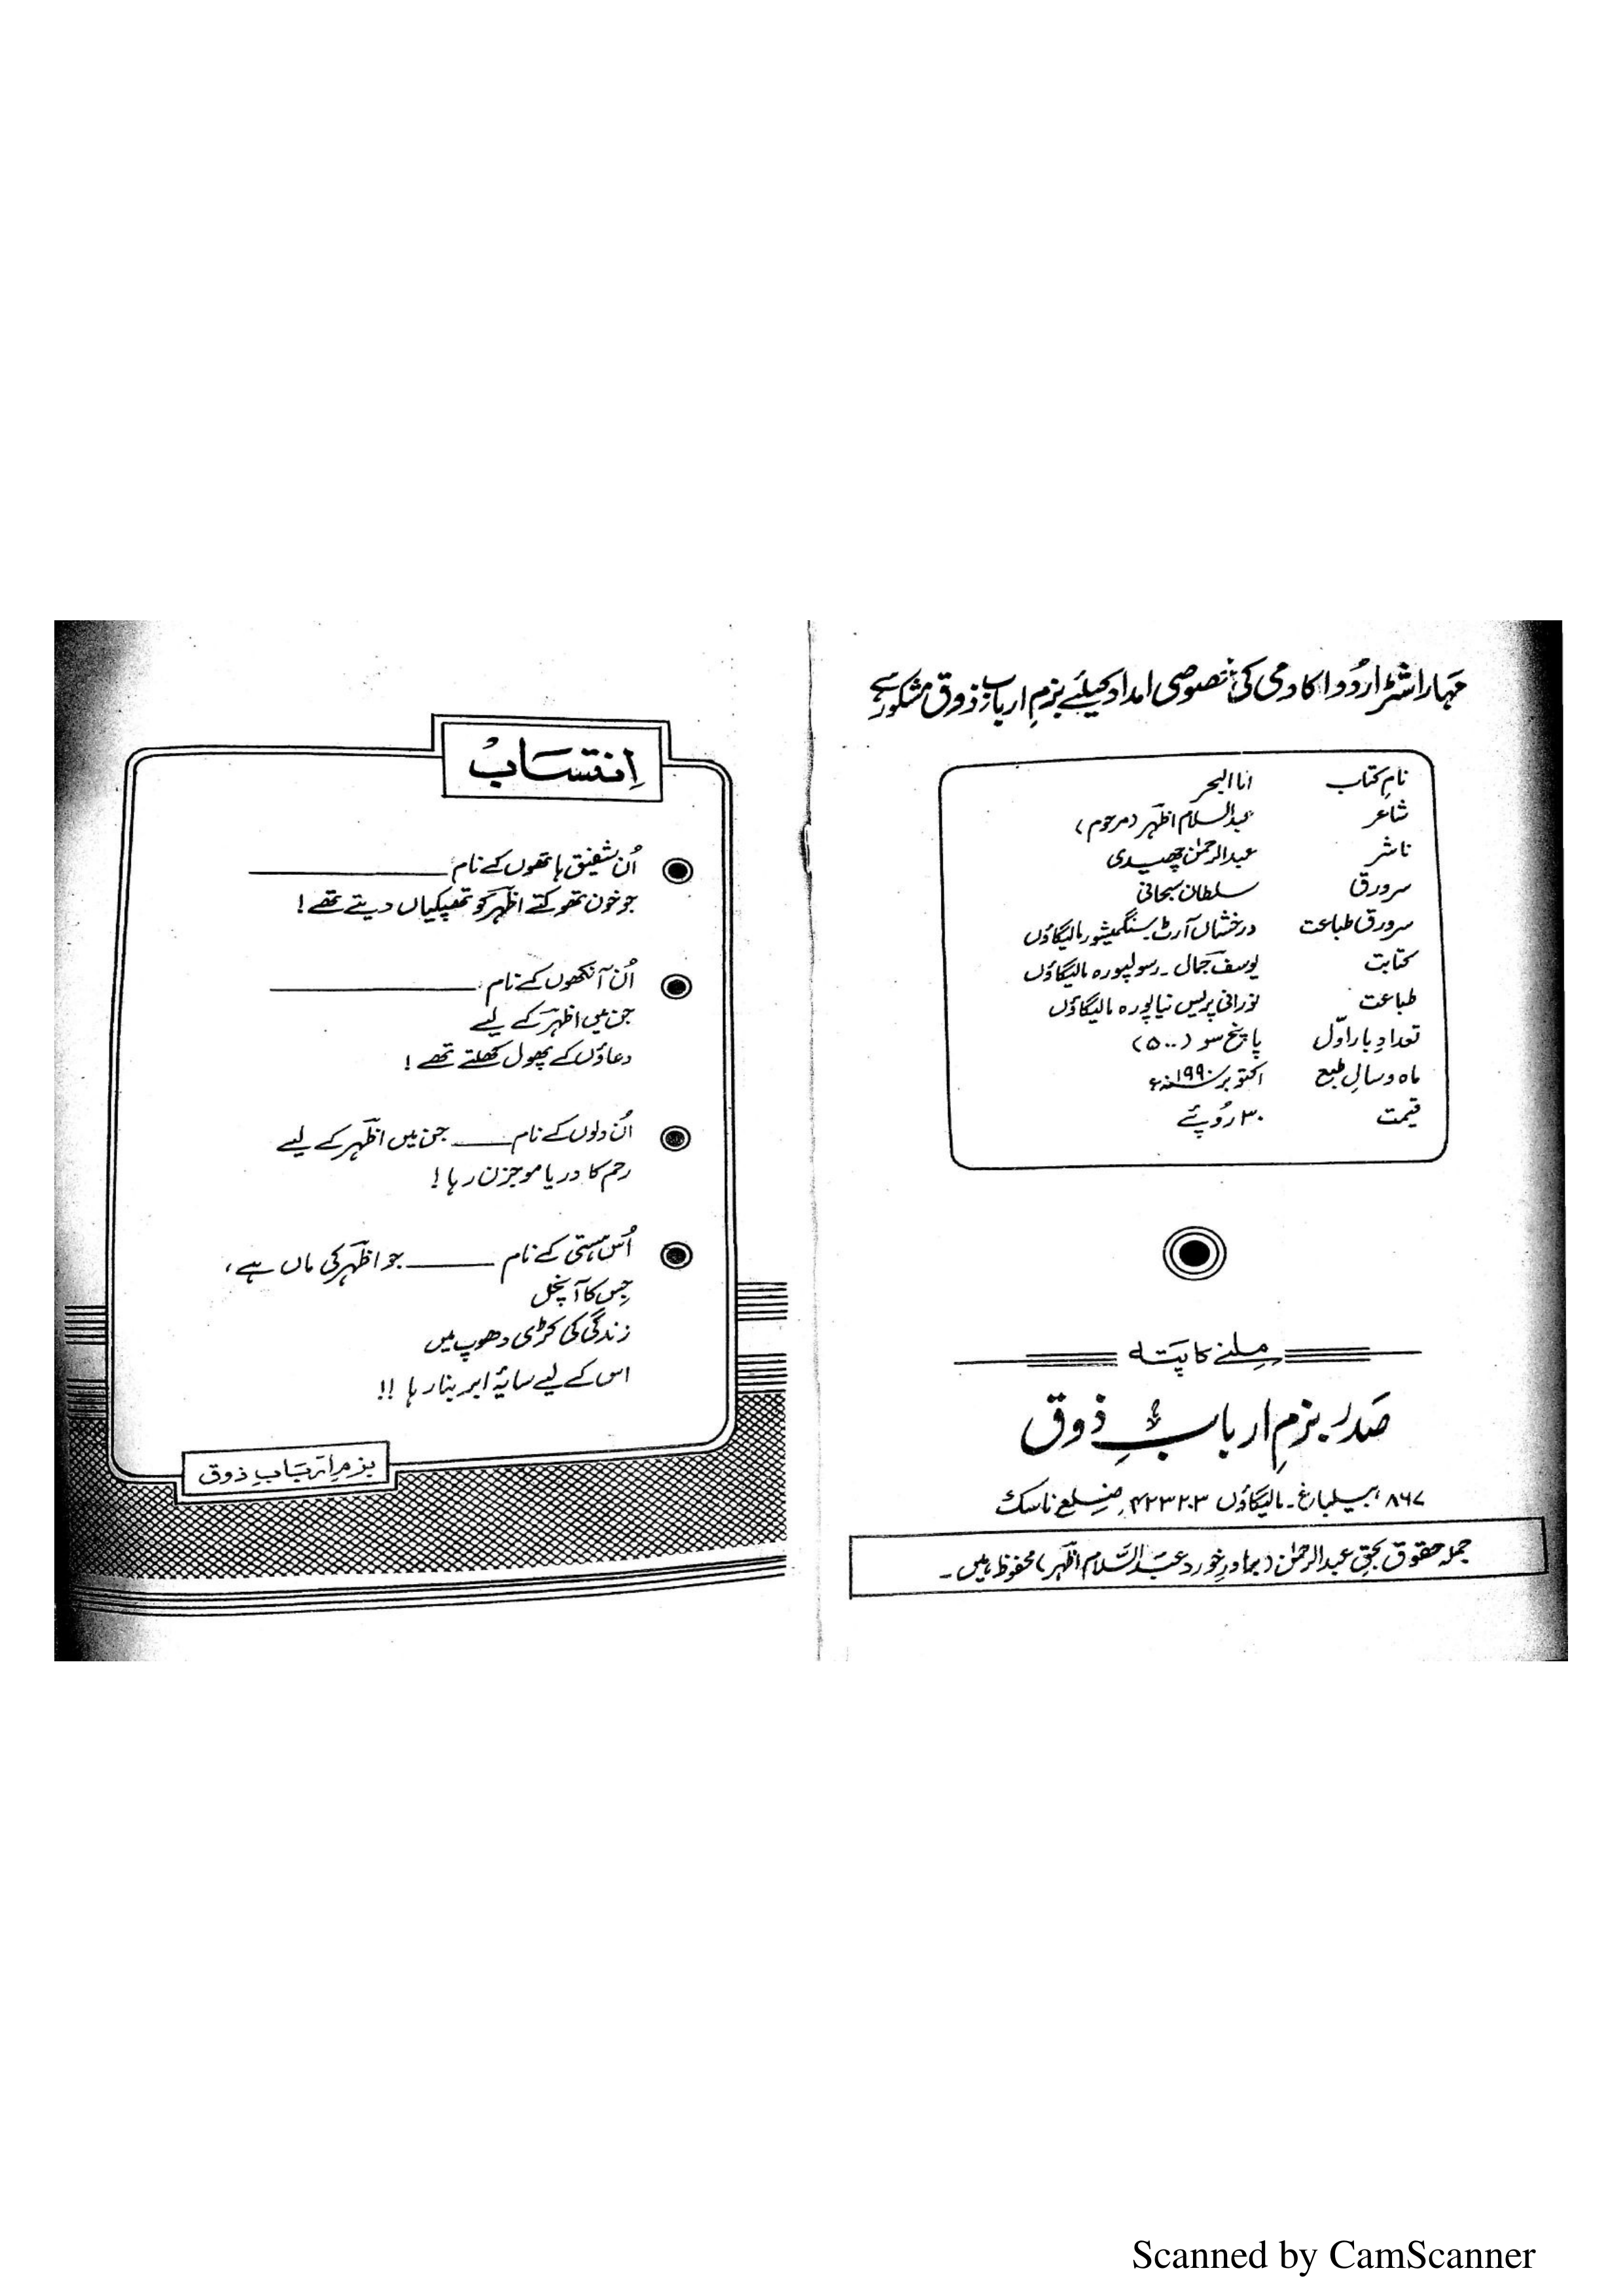 مہاراشٹر اُردو اکادمی کی خصوصی امداد کیلئے بزمِ اربابِ ذوق مشکور ہے
نامِ کتاب انا البحر
شاعر عبدالسلام اظہر (مرحوم)
ناشر عبدالرحمٰن چھیدی
سرورق سلطان سبحانی
سرورق طباعت درخشاں آرٹ سنگمیشور مالیگاؤں
کتابت یوسف جمال ۔ رسولپورہ مالیگاؤں
طباعت نورانی پریس نیاپورہ مالیگاؤں
تعدادِ بار اوّل پانچ سو (۵۰۰)
ماہ و سالِ طبع اکتوبر ۱۹۹۰ء
قیمت ۳۰ رُوپئے
مِلنے کا پَتہ
صَدر بزمِ اربابِ ذوق
۸۶۷، بیلباغ ۔ مالیگاؤں ۴۲۳۲۰۳ ضِلع ناسک
جملہ حقوق بحقِ عبدالرحمٰن (برادرِ خورد عبدالسَّلام اظہر) محفوظ ہیں ۔
اِنتسَابْ
اُن شفیق ہاتھوں کے نام ــــــــ
جو خون تھوکتے اظہر کو تھپکیاں دیتے تھے !
اُن آنکھوں کے نام ــــــــ
جن میں اظہر کے لیے
دعاؤں کے پھول کھلتے تھے !
اُن دلوں کے نام ــــــــ جن میں اظہر کے لیے
رحم کا دریا موجزن رہا !
اُس ہستی کے نام ــــــــ جو اظہر کی ماں ہے ،
جِس کا آنچل
زندگی کی کڑی دھوپ میں
اس کے لیے سایۂ ابر بنا رہا !!
بزمِ اربَابِ ذوق
Scanned by CamScanner